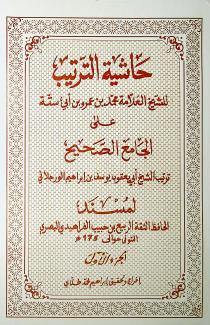 حاشية الترتيب
للشيخ العلامة محمد بن عمرو بن أبي ستة
على
الجامع الصحيح
ترتيب الشيخ أبي يعقوب يوسف بن إبراهيم الورجلاني
لمسند
الحافظ الثقة الربيع بن حبيب الفراهيدي البصري
المتوفى حوالي ١٧٥ هـ
الجزء الأول
إبراهيم محمد طلاي